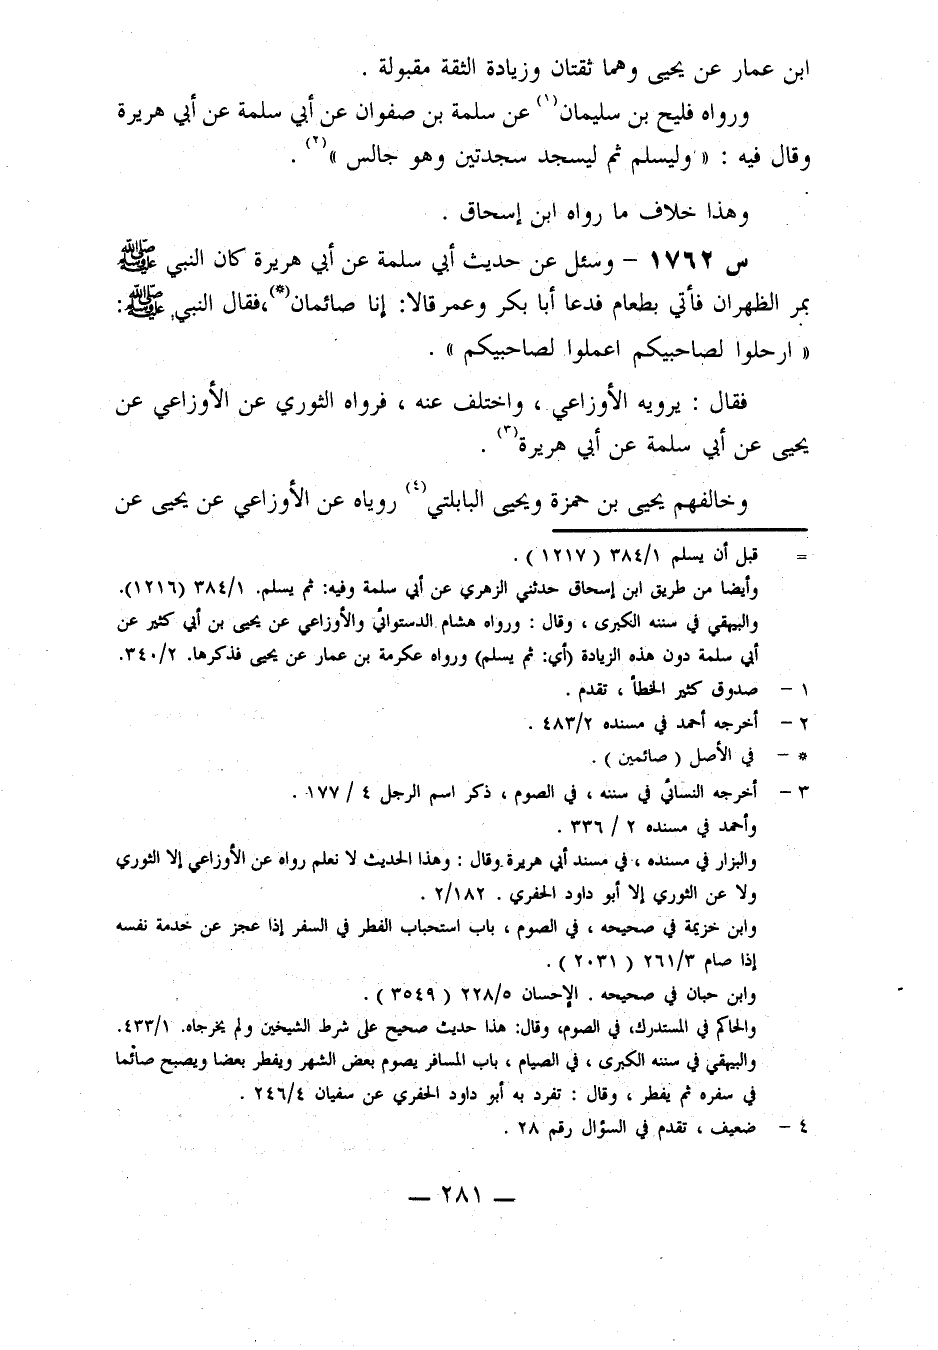 ابن عمار عن يحيى وهما ثقتان وزيادة الثقة مقبولة .
ورواه فليح بن سليمان(١) عن سلمة بن صفوان عن أبي سلمة عن أبي هريرة
وقال فيه : « وليسلم ثم ليسجد سجدتين وهو جالس »(٢) .
وهذا خلاف ما رواه ابن إسحاق .
س ١٧٦٢ – وسئل عن حديث أبي سلمة عن أبي هريرة كان النبي ﷺ
بمر الظهران فأتي بطعام فدعا أبا بكر وعمر قالا: إنا صائمان(*)،فقال النبي ﷺ:
« ارحلوا لصاحبيكم اعملوا لصاحبيكم » .
فقال : يرويه الأوزاعي ، واختلف عنه ، فرواه الثوري عن الأوزاعي عن
يحيى عن أبي سلمة عن أبي هريرة(٣) .
وخالفهم يحيى بن حمزة ويحيى البابلتي(٤) روياه عن الأوزاعي عن يحيى عن
= قبل أن يسلم ٣٨٤/١ ( ١٢١٧ ) .
وأيضا من طريق ابن إسحاق حدثني الزهري عن أبي سلمة وفيه: ثم يسلم. ٣٨٤/١ (١٢١٦).
والبيهقي في سننه الكبرى ، وقال : ورواه هشام الدستوائي والأوزاعي عن يحيى بن أبي كثير عن
أبي سلمة دون هذه الزيادة (أي: ثم يسلم) ورواه عكرمة بن عمار عن يحيى فذكرها. ٣٤٠/٢.
١ – صدوق كثير الخطأ ، تقدم .
٢ – أخرجه أحمد في مسنده ٤٨٣/٢ .
* – في الأصل ( صائمين ) .
٣ – أخرجه النسائي في سننه ، في الصوم ، ذكر اسم الرجل ٤ / ١٧٧ .
وأحمد في مسنده ٢ / ٣٣٦ .
والبزار في مسنده ، في مسند أبي هريرة وقال : وهذا الحديث لا نعلم رواه عن الأوزاعي إلا الثوري
ولا عن الثوري إلا أبو داود الحفري . ٢/١٨٢ .
وابن خزيمة في صحيحه ، في الصوم ، باب استحباب الفطر في السفر إذا عجز عن خدمة نفسه
إذا صام ٢٦١/٣ ( ٢٠٣١ ) .
وابن حبان في صحيحه . الإحسان ٢٢٨/٥ ( ٣٥٤٩ ) .
والحاكم في المستدرك، في الصوم، وقال: هذا حديث صحيح على شرط الشيخين ولم يخرجاه. ٤٣٣/١.
والبيهقي في سننه الكبرى ، في الصيام ، باب المسافر يصوم بعض الشهر ويفطر بعضا ويصبح صائما
في سفره ثم يفطر ، وقال : تفرد به أبو داود الحفري عن سفيان ٢٤٦/٤ .
٤ – ضعيف ، تقدم في السؤال رقم ٢٨ .
— ٢٨١ —